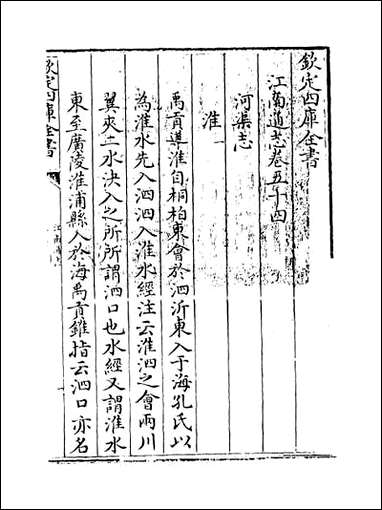 欽定四庫全書
江南通志卷五十四
河渠志
淮一
禹貢導淮自桐柏東會於泗沂東入于海孔氏以
為淮水先入泗泗入淮水經注云淮泗之會兩川
翼夾二水決入之所所謂泗口也水經又謂淮水
東至廣陵淮浦縣入於海禹貢錐指云泗口亦名
欽定四庫全書